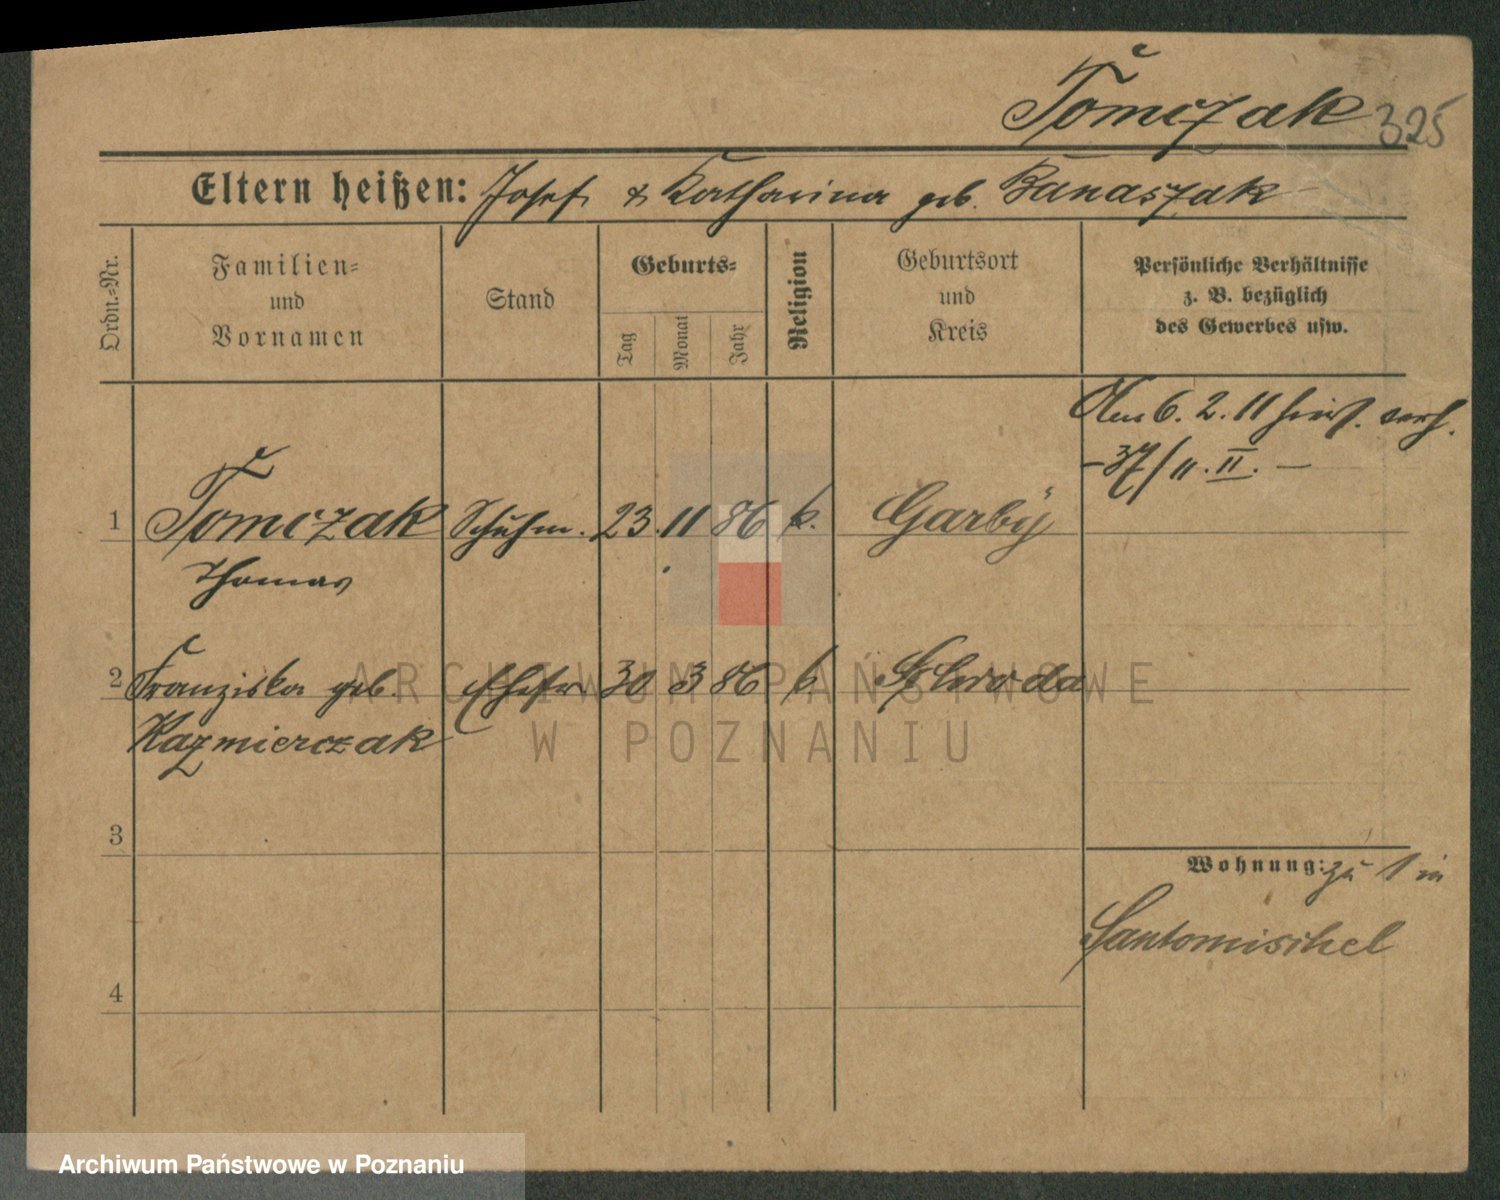 Tomczak 325
Eltern heißen: Josef & Katharina geb. Banaszak
Ordn.-Nr.
Familien-
und
Vornamen
Stand
Geburts-
Tag
Monat
Jahr
Religion
Geburtsort
und
Kreis
Persönliche Verhältnisse
z. B. bezüglich
des Gewerbes usw.
Am 6. 2. 11 hier verh.
- 37/11. II. -
1 Tomczak Schuhm. 23. 11 86 k. Garby
Thomas
2 Franziska geb. Ehefr 30 3 86 k Schroda
Kazmierczak
3
Wohnung: zu 1 in
Santomischel
4
ARCHIWUM PAŃSTWOWE
W POZNANIU
Archiwum Państwowe w Poznaniu